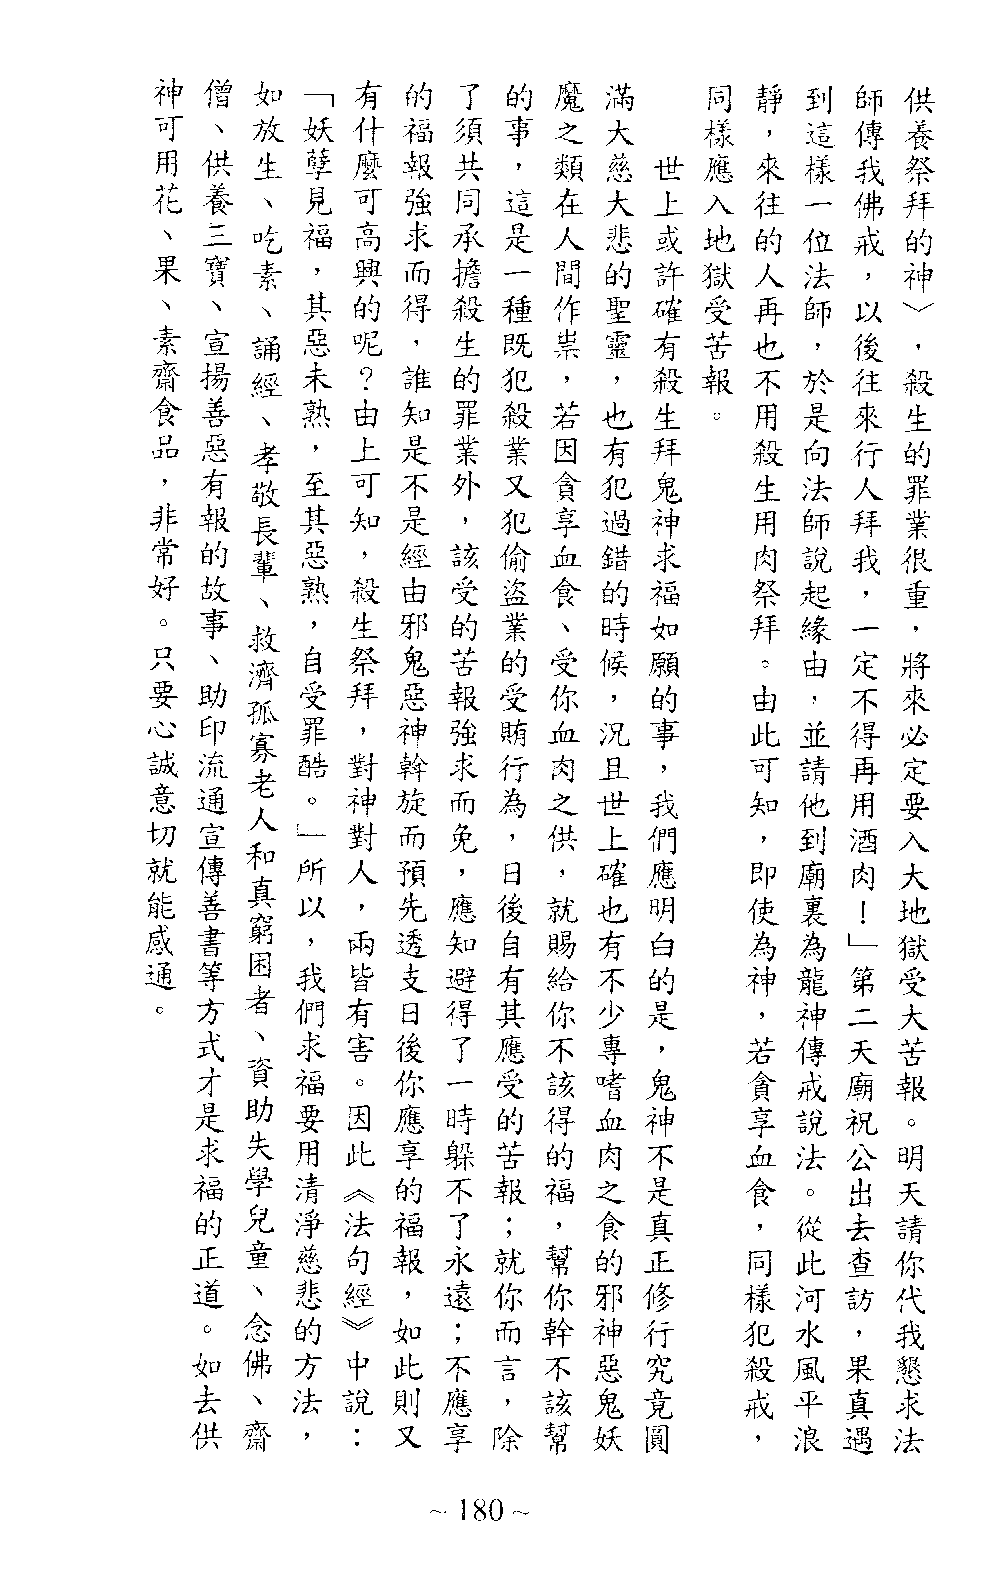 供養祭拜的神〉，殺生的罪業很重，將來必定要入大地獄受大苦報。明天請你代我懇求法
師傳我佛戒，以後往來行人拜我，一定不得再用酒肉！」第二天廟祝公出去查訪，果真遇
到這樣一位法師，於是向法師說起緣由，並請他到廟裏為龍神傳戒說法。從此河水風平浪
靜，來往的人再也不用殺生用肉祭拜。由此可知，即使為神，若貪享血食，同樣犯殺戒，
同樣應入地獄受苦報。
世上或許確有殺生拜鬼神求福如願的事，我們應明白的是，鬼神不是真正修行究竟圓
滿大慈大悲的聖靈，也有犯過錯的時候，況且世上確也有不少專嗜血肉之食的邪神惡鬼妖
魔之類在人間作祟，若因貪享血食、受你血肉之供，就賜給你不該得的福，幫你幹不該幫
的事，這是一種既犯殺業又犯偷盜業的受賄行為，日後自有其應受的苦報；就你而言，除
了須共同承擔殺生的罪業外，該受的苦報強求而免，應知避得了一時躲不了永遠；不應享
的福報強求而得，誰知是不是經由邪鬼惡神幹旋而預先透支日後你應享的福報，如此則又
有什麼可高興的呢？由上可知，殺生祭拜，對神對人，兩皆有害。因此《法句經》中說：
「妖孽見福，其惡未熟，至其惡熟，自受罪酷。」所以，我們求福要用清淨慈悲的方法，
如放生、吃素、誦經、孝敬長輩、救濟孤寡老人和真窮困者、資助失學兒童、念佛、齋
僧、供養三寶、宣揚善惡有報的故事、助印流通宣傳善書等方式才是求福的正道。如去供
神可用花、果、素齋食品，非常好。只要心誠意切就能感通。
~180~